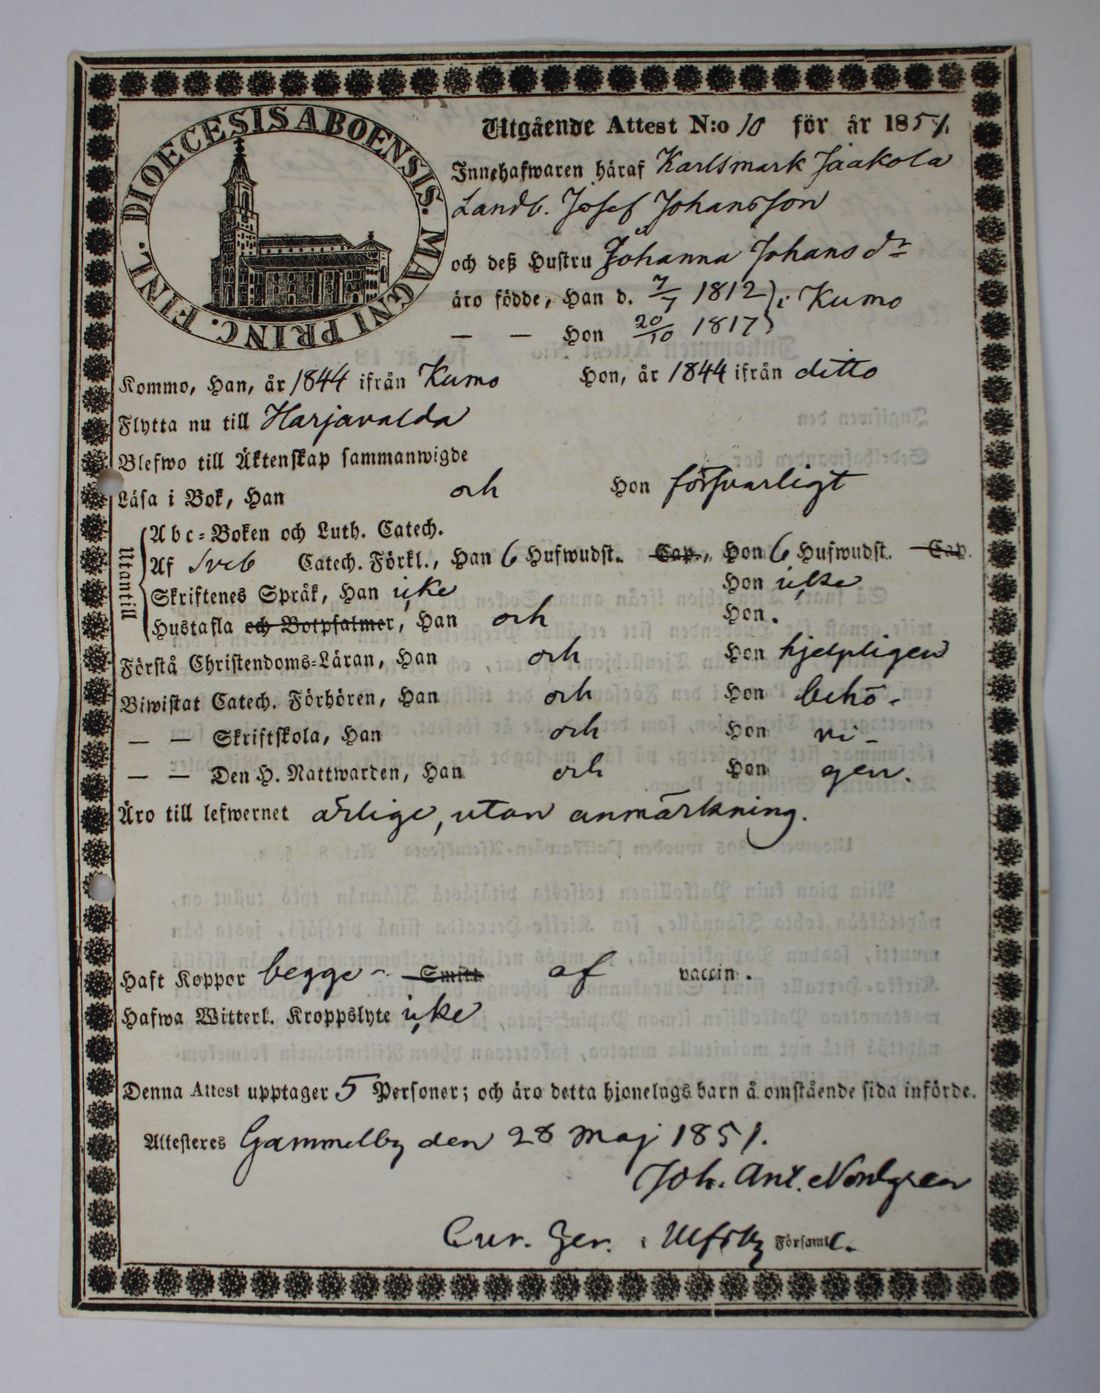 DIOECESIS ABOENSIS. MAGNI PRINC. FINL.
Utgående Attest N:o 10 för år 1851.
Innehafwaren häraf Karlsmark Jaakola
Landb. Josef Johansson
och deß Hustru Johanna Johans dr
äro födde, Han d. 7/7 1812 } i Kumo
— — Hon 20/10 1817 }
Kommo, Han, år 1844 ifrån Kumo Hon, år 1844 ifrån ditto
Flytta nu till Harjavalda
Blefwo till Äktenskap sammanwigde
Läsa i Bok, Han och Hon försvarligt
Utantill
Abc-Boken och Luth. Catech.
Af Sveb Catech. Förkl., Han 6 Hufwudst. Cap., Hon 6 Hufwudst. Cap.
Skriftenes Språk, Han icke Hon icke
Hustafla och Botpsalmer, Han och Hon.
Förstå Christendoms-Läran, Han och Hon hjelpligen
Biwistat Catech. Förhören, Han och Hon behö-
— — Skriftskola, Han och Hon ri-
— — Den H. Nattwarden, Han och Hon gen.
Äro till lefwernet ärlige, utan anmärkning.
Haft Koppor begge Smitt af vaccin.
Hafwa Witterl. Kroppslyte icke
Denna Attest upptager 5 Personer; och äro detta hjonelags barn å omstående sida införde.
Attesteres Gammelby den 28 Maj 1851.
Joh. Ant. Nordgren
Cur. Ger. i Ulfsby Församl.